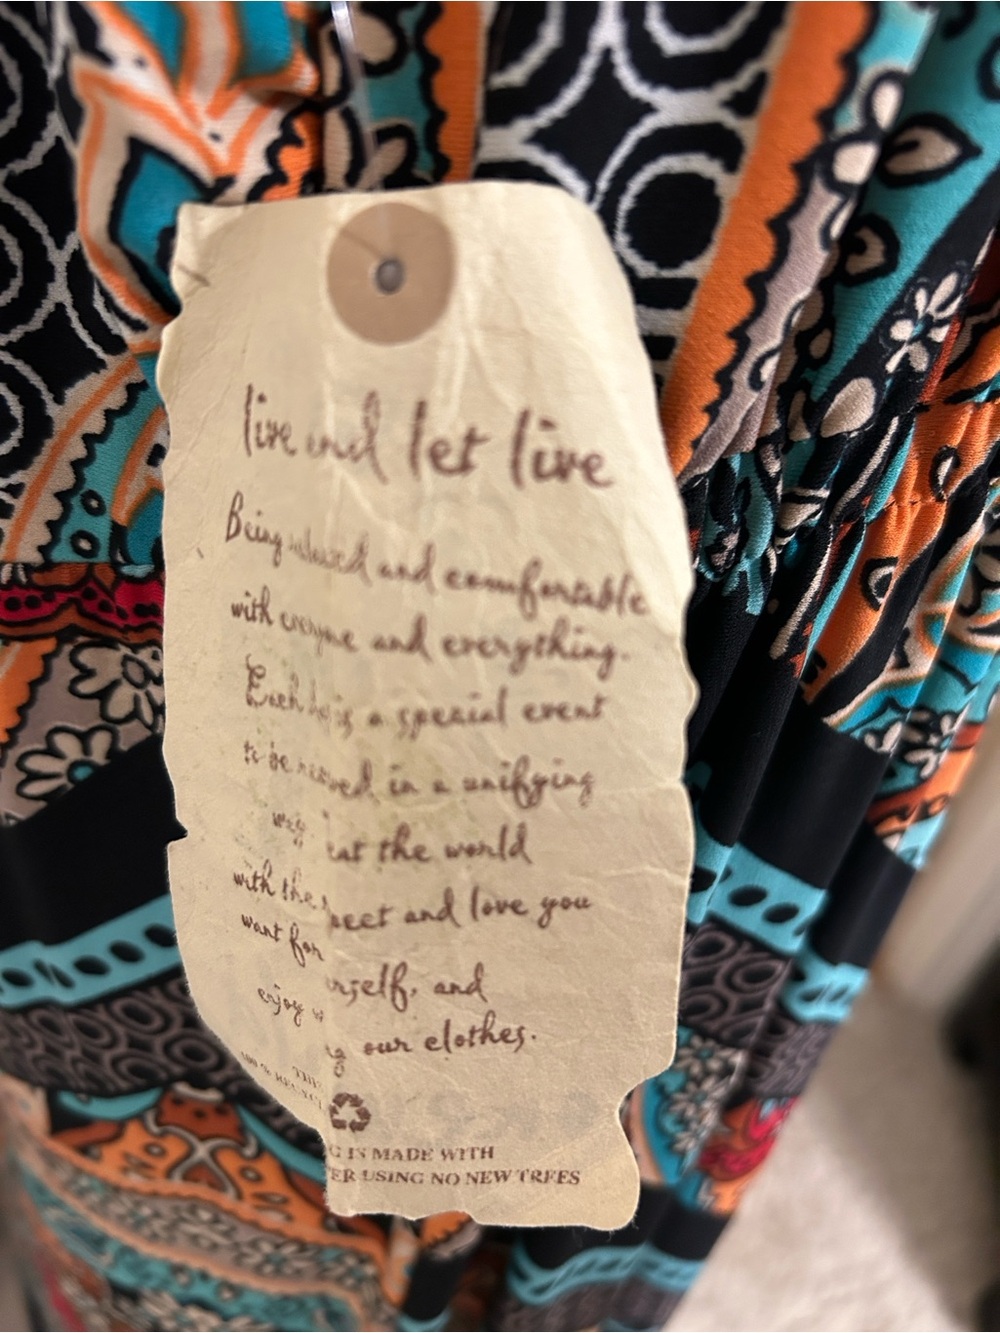 live and let live
Being relaxed and comfortable
with everyone and everything.
Each day is a special event
to be revved in a unifying
way hat the world
with the r pect and love you
want for urself, and
enjoy w ng our clothes.
THIS
100 % RECYCL
G IS MADE WITH
ER USING NO NEW TREES